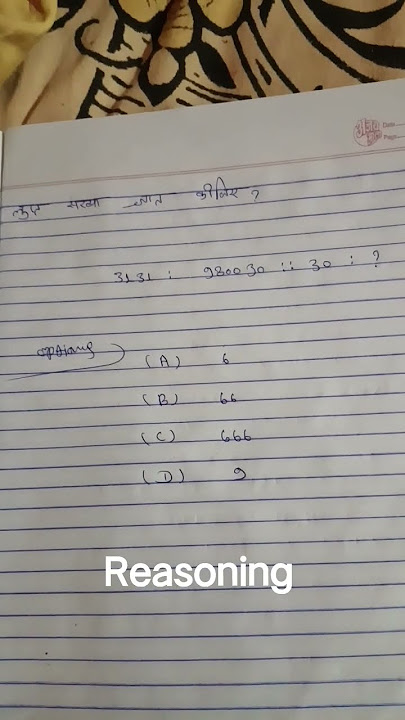 लुप्त संख्या ज्ञात कीजिए ?
Date
Page
3131 : 980030 :: 30 : ?
options
(A) 6
(B) 66
(C) 666
(D) 9
Reasoning